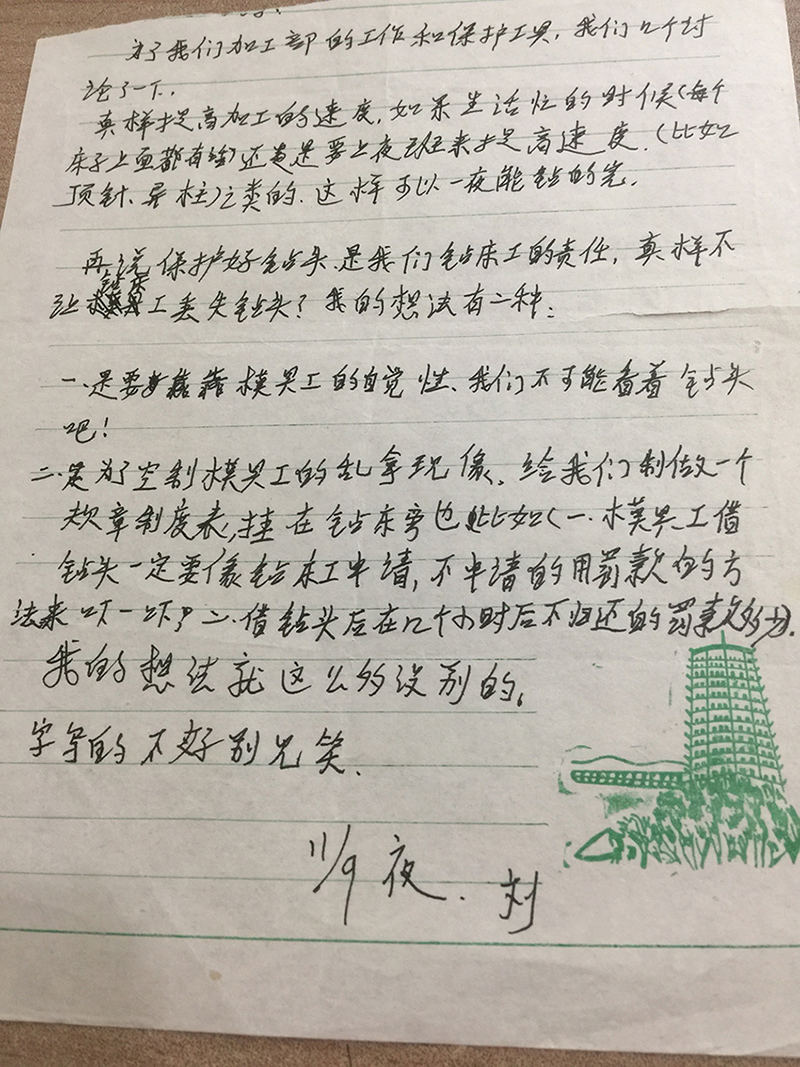 为了我们加工部的工作和保护工具，我们几个讨
论了一下，
真样提高加工的速度，如果生活忙的时候（每个
床子上面都有活）还是要上夜班来提高速度．（比如
顶针、导柱）之类的．这样可以一夜能钻的完．
再说保护好钻头是我们钻床工的责任，真样不
让模具工丢失钻头？我的想法有二种：
一．是要靠模具工的自觉性、我们不可能看着钻头
吧！
二．是为了空制模具工的乱拿现像．给我们制做一个
规章制度表，挂在钻床旁边比如（一．模具工借
钻头一定要像钻床工申请，不申请的用罚款的方
法来吓一吓，二．借钻头后在几个小时后不归还的罚款多少）．
我的想法就这么多没别的，
字写的不好别见笑．
11/9 夜． 刘